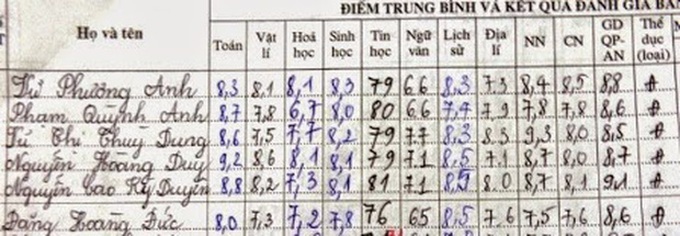 ĐIỂM TRUNG BÌNH VÀ KẾT QUẢ ĐÁNH GIÁ
Họ và tên Toán Vật lí Hoá học Sinh học Tin học Ngữ văn Lịch sử Địa lí NN CN GD QP-AN Thể dục (loại)
Phương Anh 8,3 8,1 8,1 8,3 79 6.6 8,3 7.3 8,4 8,5 8,8 Đ
Phạm Quỳnh Anh 8,7 7,8 6,7 8,0 80 6.6 7,4 7.9 7,8 7,8 8,6 Đ
Từ Thị Thuỳ Dung 8,6 7,5 7,7 8,2 79 7.7 8,3 8.3 9,3 8,0 8,5 Đ
Nguyễn Hoàng Duy 9,2 8,6 8,1 8,1 79 7.1 8,5 7.1 8,7 8,0 8,7 Đ
Nguyễn Cao Kỳ Duyên 8,8 8,2 7,3 8,1 81 7.1 8,5 8.0 8,7 8,1 9,1 Đ
Đặng Hoàng Đức 8,0 7,3 7,2 7,8 76 65 8,5 7.6 7,5 7,6 8,6 Đ